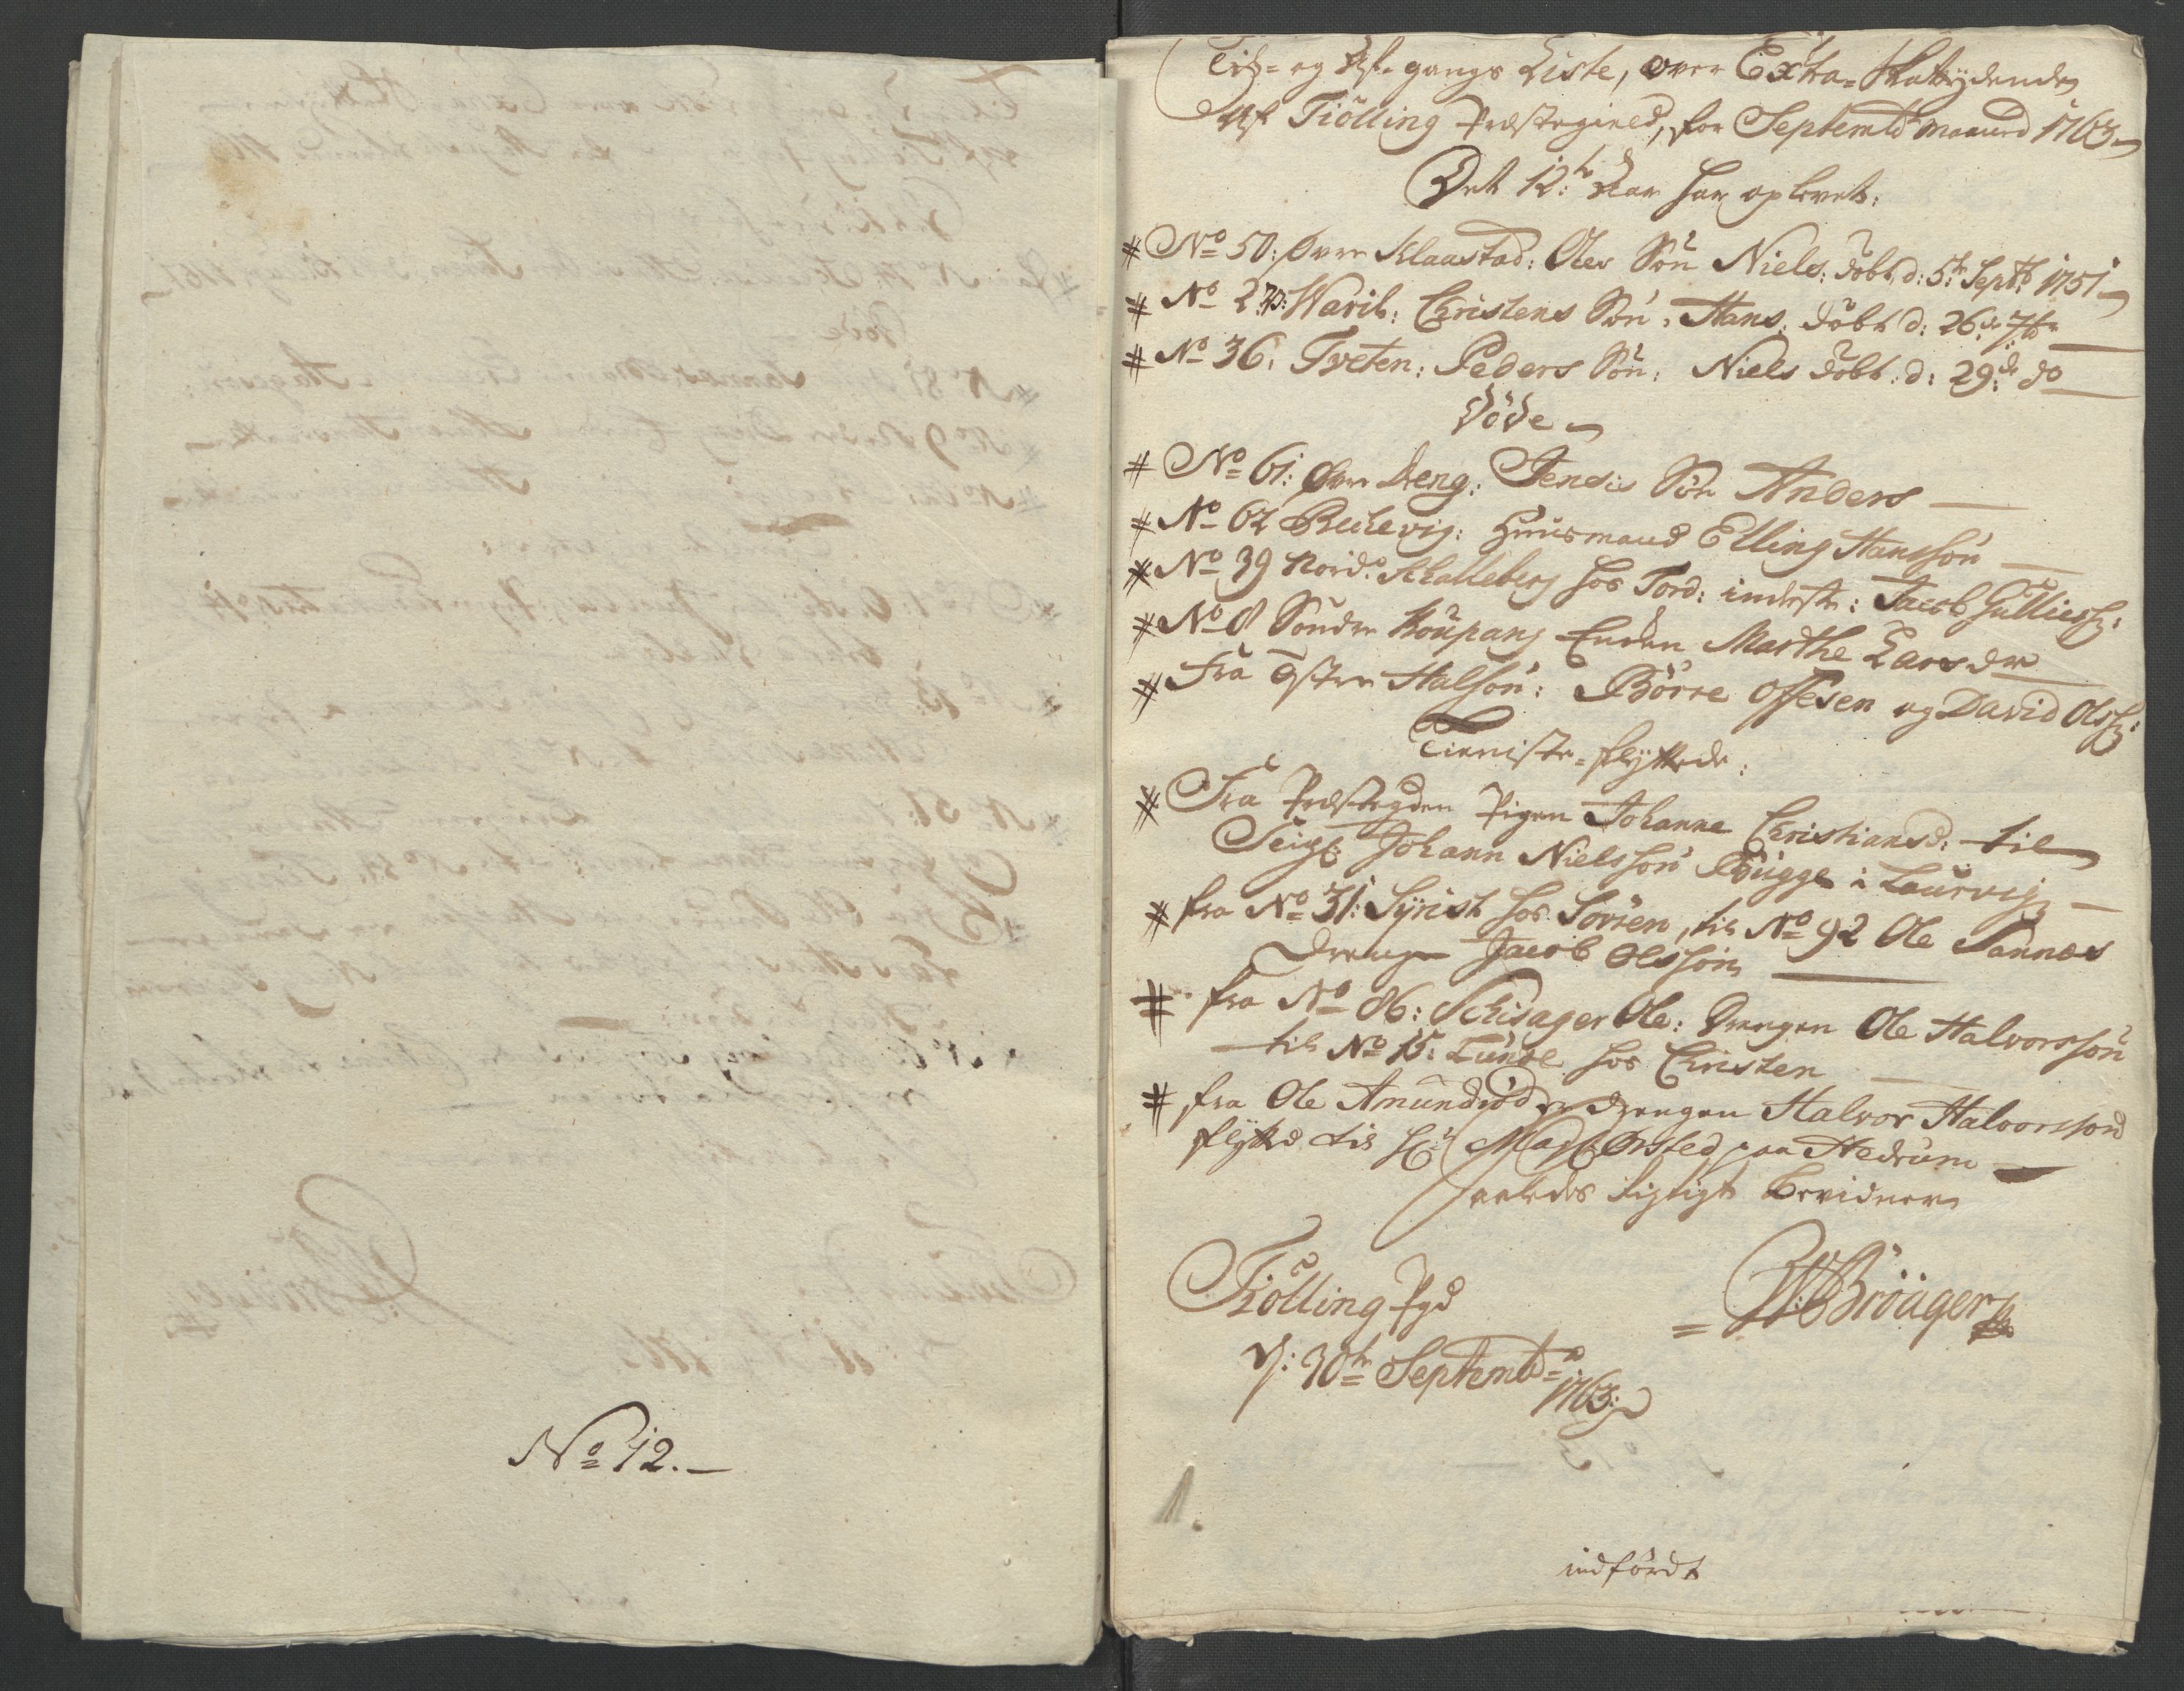 No 12.
Til- og Af-gangs Liste, over Extra-Skattÿdende
Af Tiölling Præstegield, for Septembr Maaned 1763
Det 12te Aar har oplevet:
# No 50: Øvre Klaastad: Oles Sön Niels: döbt d: 5te Septbr 1751
# No 27: Waril: Christens Sön, Hans, döbt d: 26de 7br
# No 36: Tveten: Peders Sön: Niels döbt d: 29de do
Döde
# No 61: Øvre Øeng: Jens's Sön Anders
# No 62 Rechevig: Huusmand Elling Hanssön
# No 39 Nord: Skalleberg hos Tord: inderste: Jacob Gulliess:
# No 8 Söndre Koupang Enken Marthe Larsdr
# Fra Østre Halsön: Börre Offesen og David Olss:
Tieniste-flyttede:
# Fra Præstegden Pigen Johanne Christiansd: til
Seigr Johann Nielssön Bugge i Laurvig
# fra No 31: Syrist hos Sören, til No 92 Ole Sannes
Drengen Jacob Olssön
# fra No 86: Schisager Ole: Drengen Ole Halvorssön
til No 15: Lunde hos Christen
# fra Ole Amundröd Drengen Halvor Halvorssön
flytted til Hr: Mag: Ørsted paa Hedrum
saaledes rigtigt bevidner
Tiölling Pgd
d: 30te Septembr
1763:
W: Bröager
indfördt